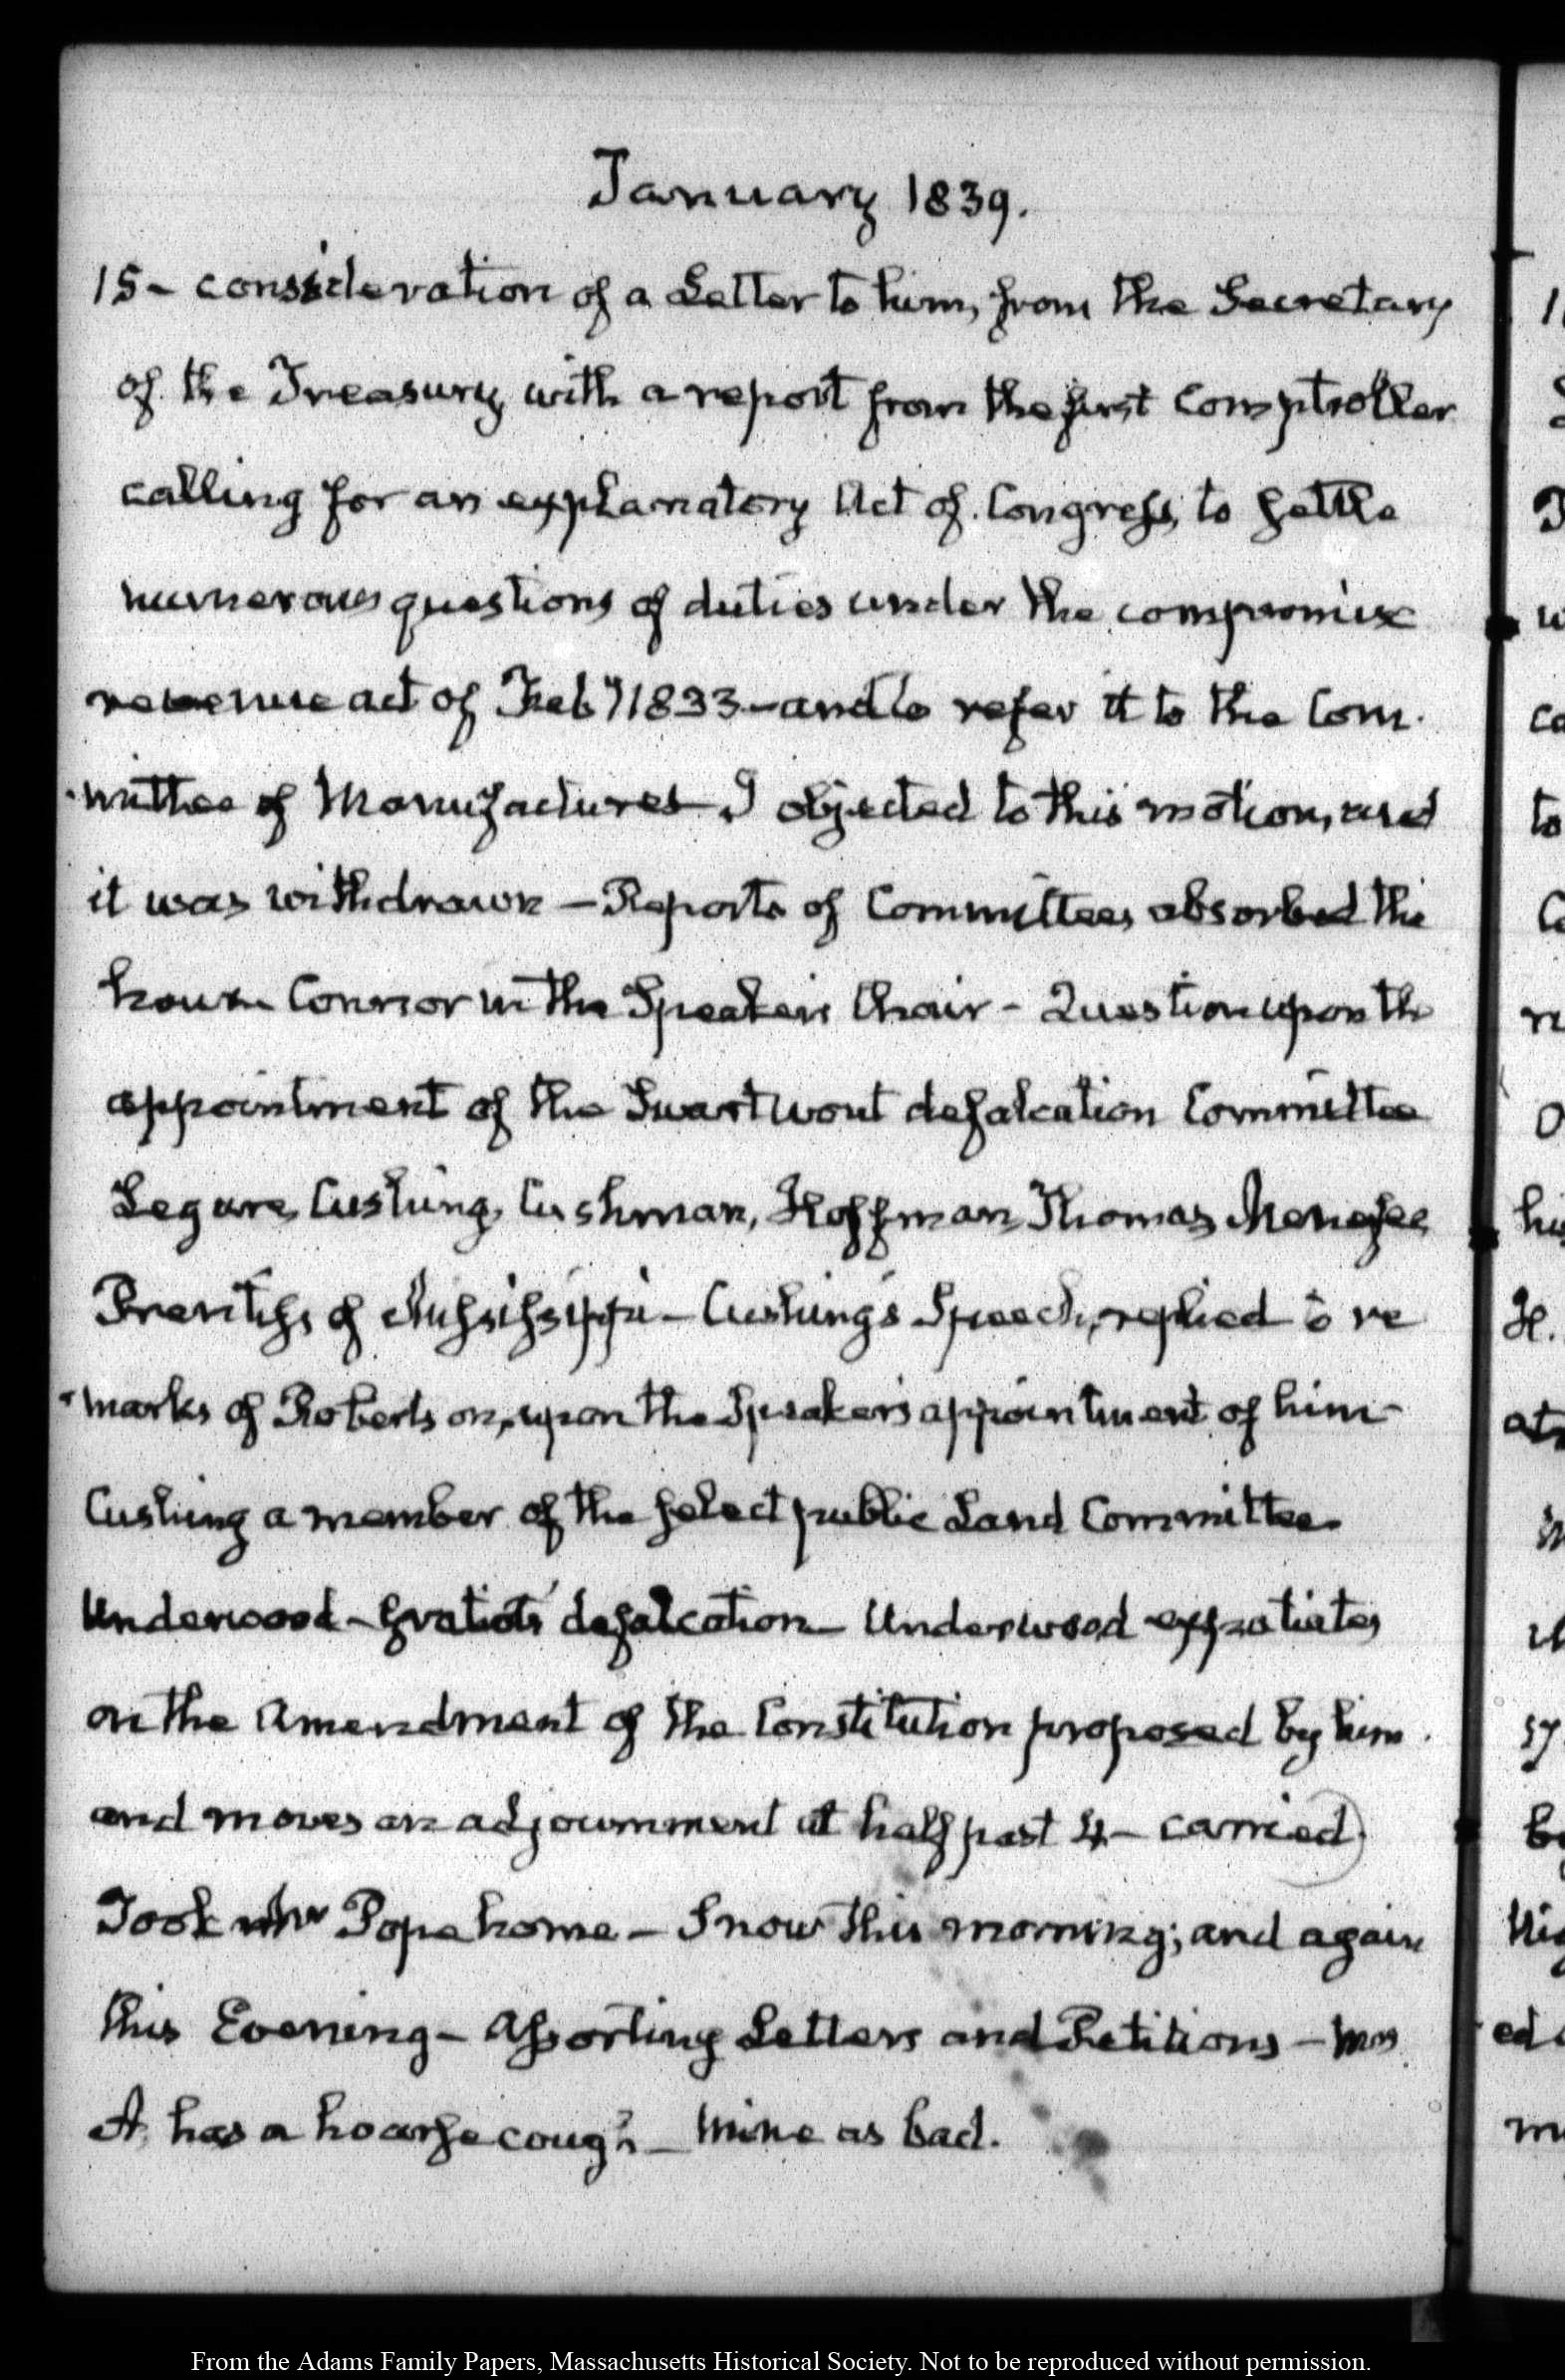 January 1839.
15 - consideration of a Letter to him, from the Secretary
of the Treasury, with a report from the first Comptroller
calling for an explanatory Act of Congress, to settle
numerous questions of duties under the compromise
revenue act of Feby 1833 - and to refer it to the Com-
-mittee of Manufactures - I objected to this motion, and
it was withdrawn - Reports of Committees absorbed the
hour - Connor in the Speakers Chair - Question upon the
appointment of the Swartwout defalcation Committee
Legare, Cushing, Cushman, Hoffman, Thomas, Menefee
Prentiss of Mississippi - Cushing's Speech, replied to re
-marks of Robertson, upon the Speaker's appointment of him
Cushing a member of the select public Land Committee.
Underwood - Gratiot's defalcation - Underwood expatiates
on the Amendment of the Constitution proposed by him
and moves an adjournment at half past 4 - carried
Took Mr Pope home - Snow this morning; and again
this Evening - Assorting Letters and Petitions - Mrs
A. has a hoarse cough - Mine as bad.
From the Adams Family Papers, Massachusetts Historical Society. Not to be reproduced without permission.